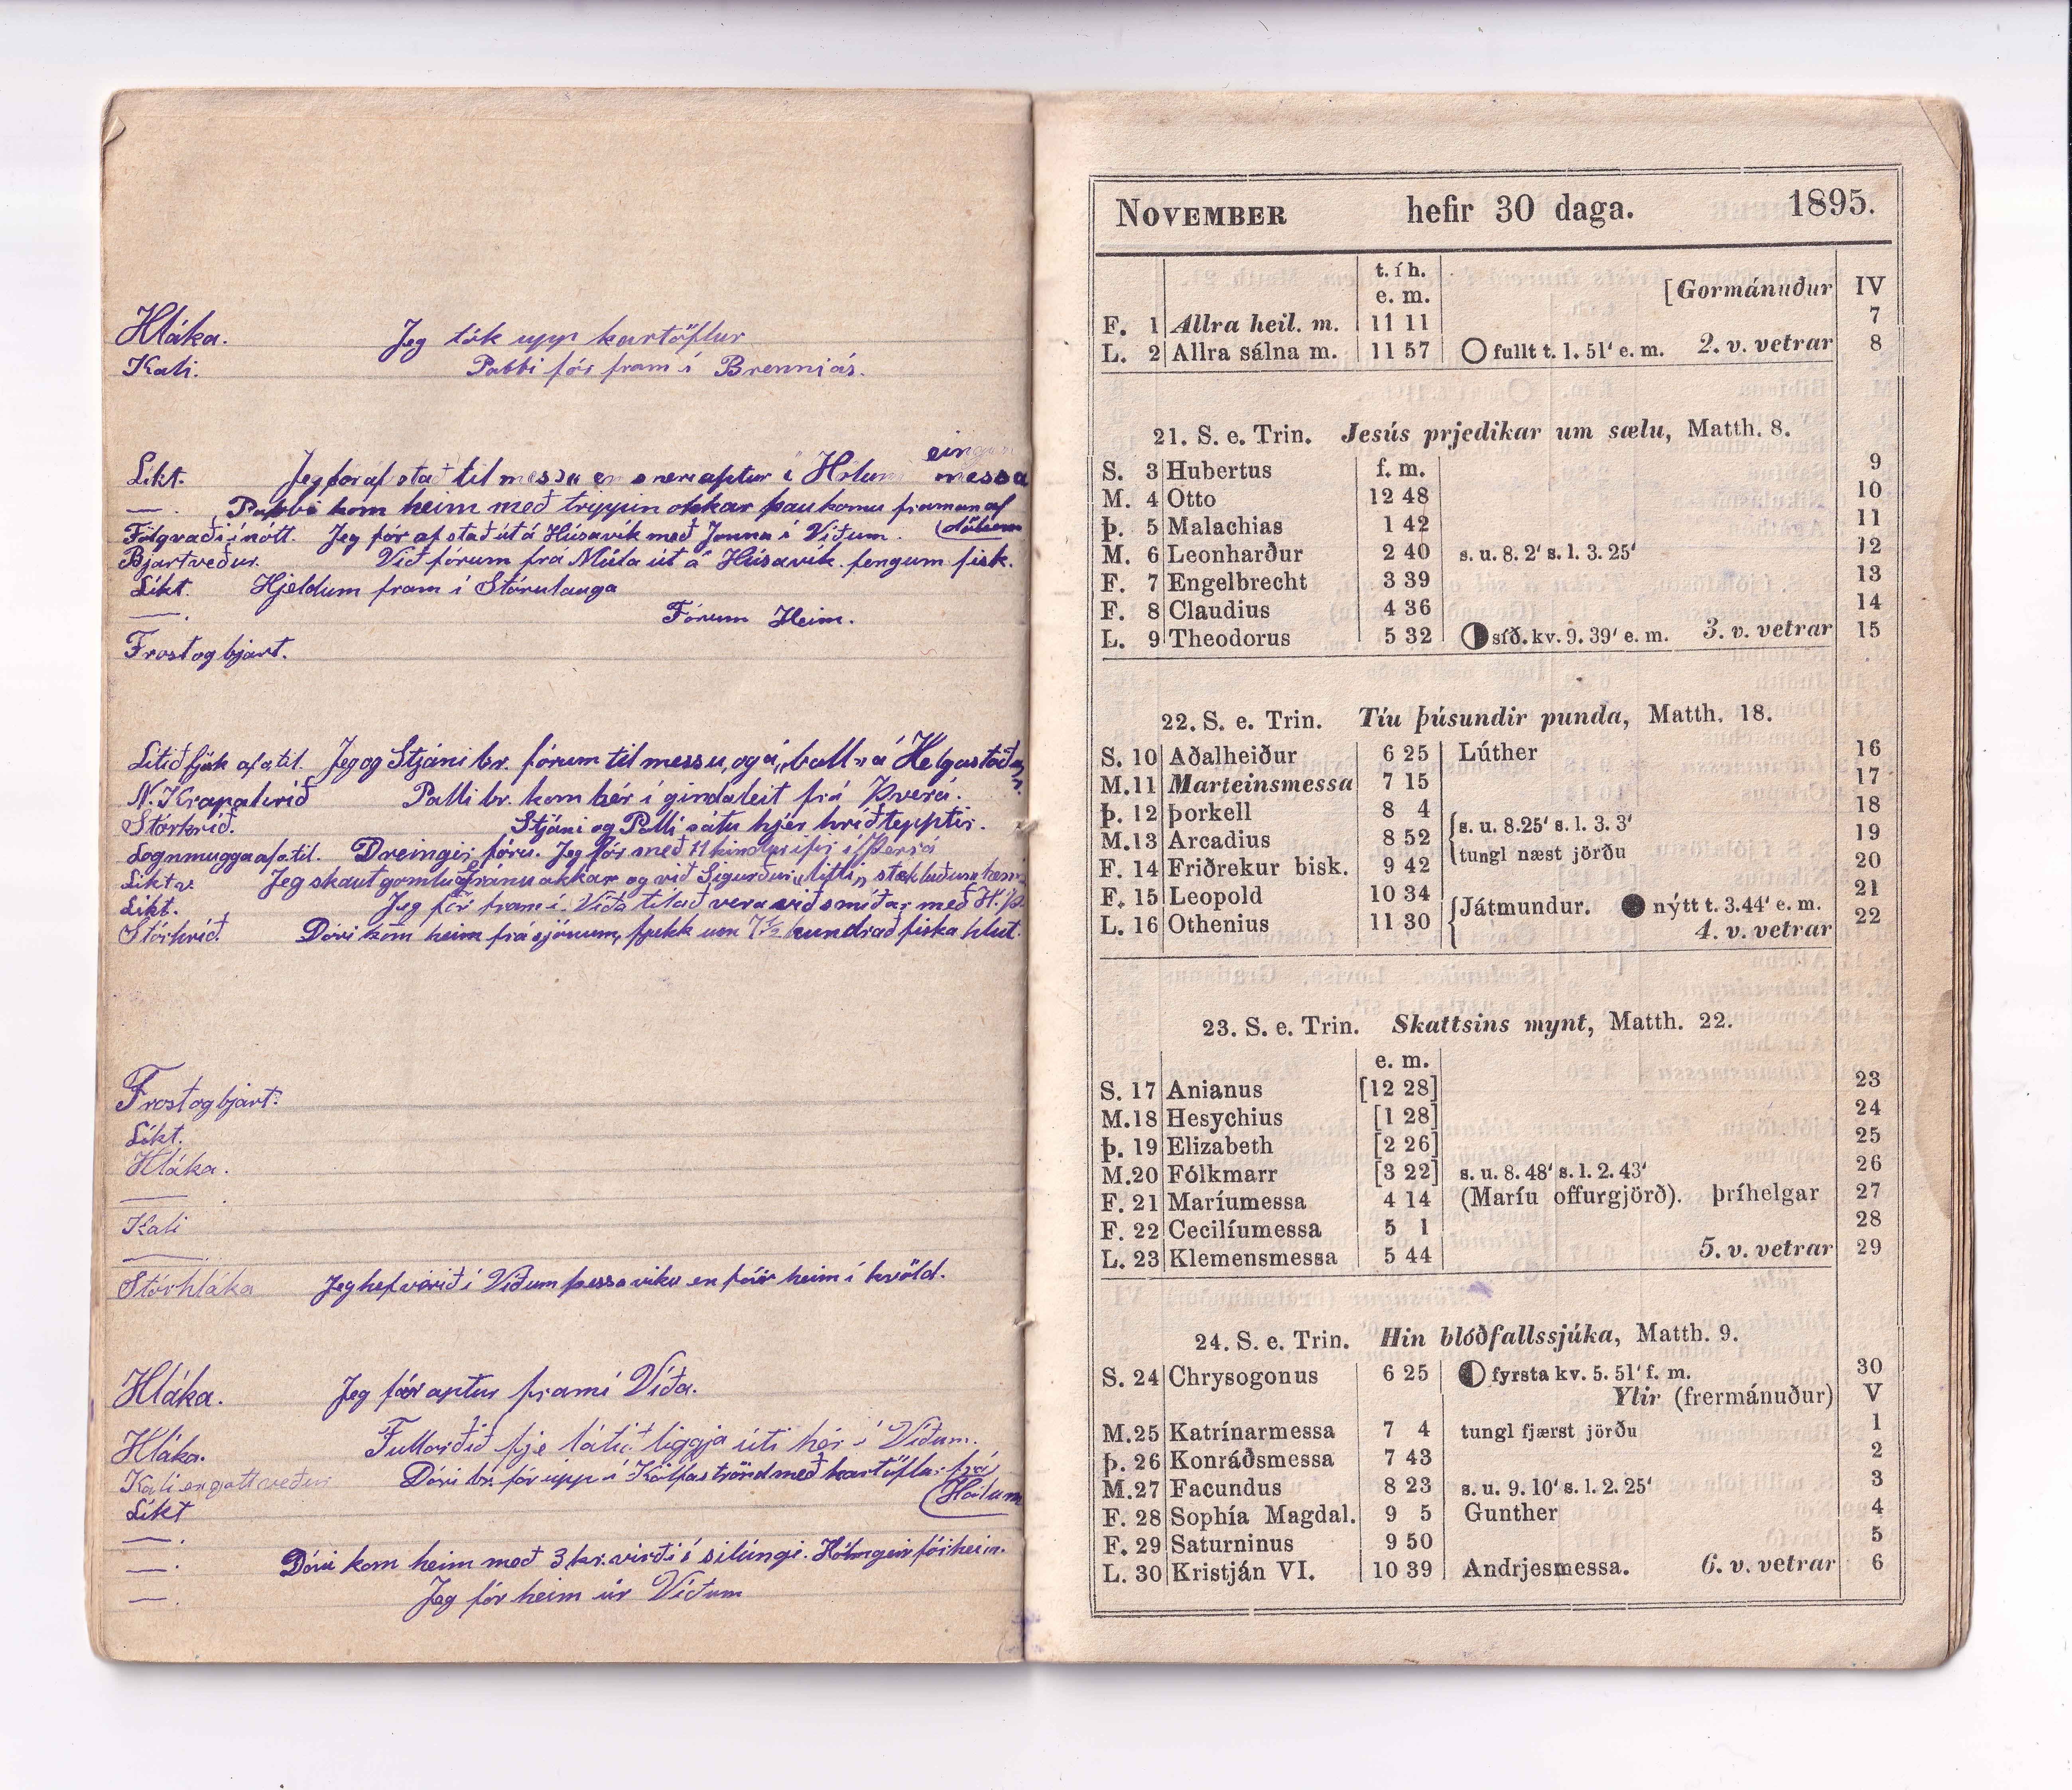 Hláka. Jeg tók upp kartöflur
Kali. Pabbi fór fram í Brenniás.
eingin
Líkt. Jeg fór af stað til messu en sneri aptur í Hólum messa
— . Pabbi kom heim með trippin okkar þau komu framan af
Fölgvaði í nótt. Jeg fór af stað út á Húsavík með Jonna í Víðum. (dölum
Bjartveður. Við fórum frá Múla út á Húsavík. fengum fisk.
Líkt. Hjeldum fram í Stórulauga
— . Fórum Heim.
Frost og bjart.
Litið fjúk af a til. Jeg og Stjáni br. fórum til messu, og á „ball" á Helgastöðum
N. Krapahríð Palli br. kom hér í gindaleit frá Þverá.
Stórhríð. Stjáni og Palli sátu hjer hríðtepptir.
Lognmugga af a til. Dreingir fóru. Jeg fór með 11 kindur
Líkt v. Jeg skaut gömlu Gránu okkar og við Sigurður „litli"
Líkt. Jeg fór fram í Víða til að vera við smíðar með H.
Stórhríð. Dóri kom heim frá sjónum, fjekk um 7½ hundrað fiska hlut.
Frost og bjart.
Líkt.
Hláka.
— .
Kali
—
Stórhláka Jeg hef verið í Víðum þessa viku en fór heim í kvöld.
Hláka. Jeg fór aptur fram í Víða.
Hláka. Fullorðið fje látið liggja úti hér í Víðum.
Kali en gott veður Dóri br. fór upp í Kálfaströnd með kartöflur frá
Líkt (Hólum
— .
— . Dóri kom heim með 3 kr. virði í silúngi. fór heim.
— . Jeg fór heim úr Víðum
NOVEMBER hefir 30 daga. 1895.
t. í h.
e. m. [Gormánuður IV
F. 1 Allra heil. m. 11 11 7
L. 2 Allra sálna m. 11 57 fullt t. 1. 51' e. m. 2. v. vetrar 8
21. S. e. Trin. Jesús prjedikar um sælu, Matth. 8.
S. 3 Hubertus f. m. 9
M. 4 Otto 12 48 10
Þ. 5 Malachias 1 42 11
M. 6 Leonharður 2 40 s. u. 8. 2' s. l. 3. 25' 12
F. 7 Engelbrecht 3 39 13
F. 8 Claudius 4 36 14
L. 9 Theodorus 5 32 síð. kv. 9. 39' e. m. 3. v. vetrar 15
22. S. e. Trin. Tíu þúsundir punda, Matth. 18.
S. 10 Aðalheiður 6 25 Lúther 16
M. 11 Marteinsmessa 7 15 17
Þ. 12 Þorkell 8 4 18
M. 13 Arcadius 8 52 {s. u. 8.25' s. l. 3. 3' 19
F. 14 Friðrekur bisk. 9 42 tungl næst jörðu 20
F. 15 Leopold 10 34 21
{Játmundur. nýtt t. 3.44' e. m.
L. 16 Othenius 11 30 4. v. vetrar 22
23. S. e. Trin. Skattsins mynt, Matth. 22.
e. m.
S. 17 Anianus [12 28] 23
M. 18 Hesychius [1 28] 24
Þ. 19 Elizabeth [2 26] 25
M. 20 Fólkmarr [3 22] s. u. 8. 48' s. l. 2. 43' 26
F. 21 Maríumessa 4 14 (Maríu offurgjörð). Þríhelgar 27
F. 22 Cecilíumessa 5 1 28
L. 23 Klemensmessa 5 44 5. v. vetrar 29
24. S. e. Trin. Hin blóðfallssjúka, Matth. 9.
S. 24 Chrysogonus 6 25 fyrsta kv. 5. 51' f. m. 30
Ylir (frermánuður) V
M. 25 Katrínarmessa 7 4 tungl fjærst jörðu 1
Þ. 26 Konráðsmessa 7 43 2
M. 27 Facundus 8 23 s. u. 9. 10' s. l. 2. 25' 3
F. 28 Sophía Magdal. 9 5 Gunther 4
F. 29 Saturninus 9 50 5
L. 30 Kristján VI. 10 39 Andrjesmessa. 6. v. vetrar 6